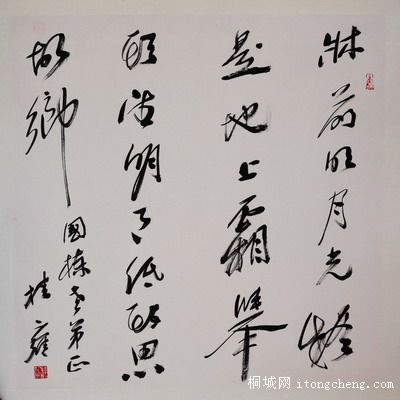 牀前明月光疑
是地上霜舉
頭望明月低頭思
故鄉
國棟老弟正
桂雍
桐城网 itongcheng.com